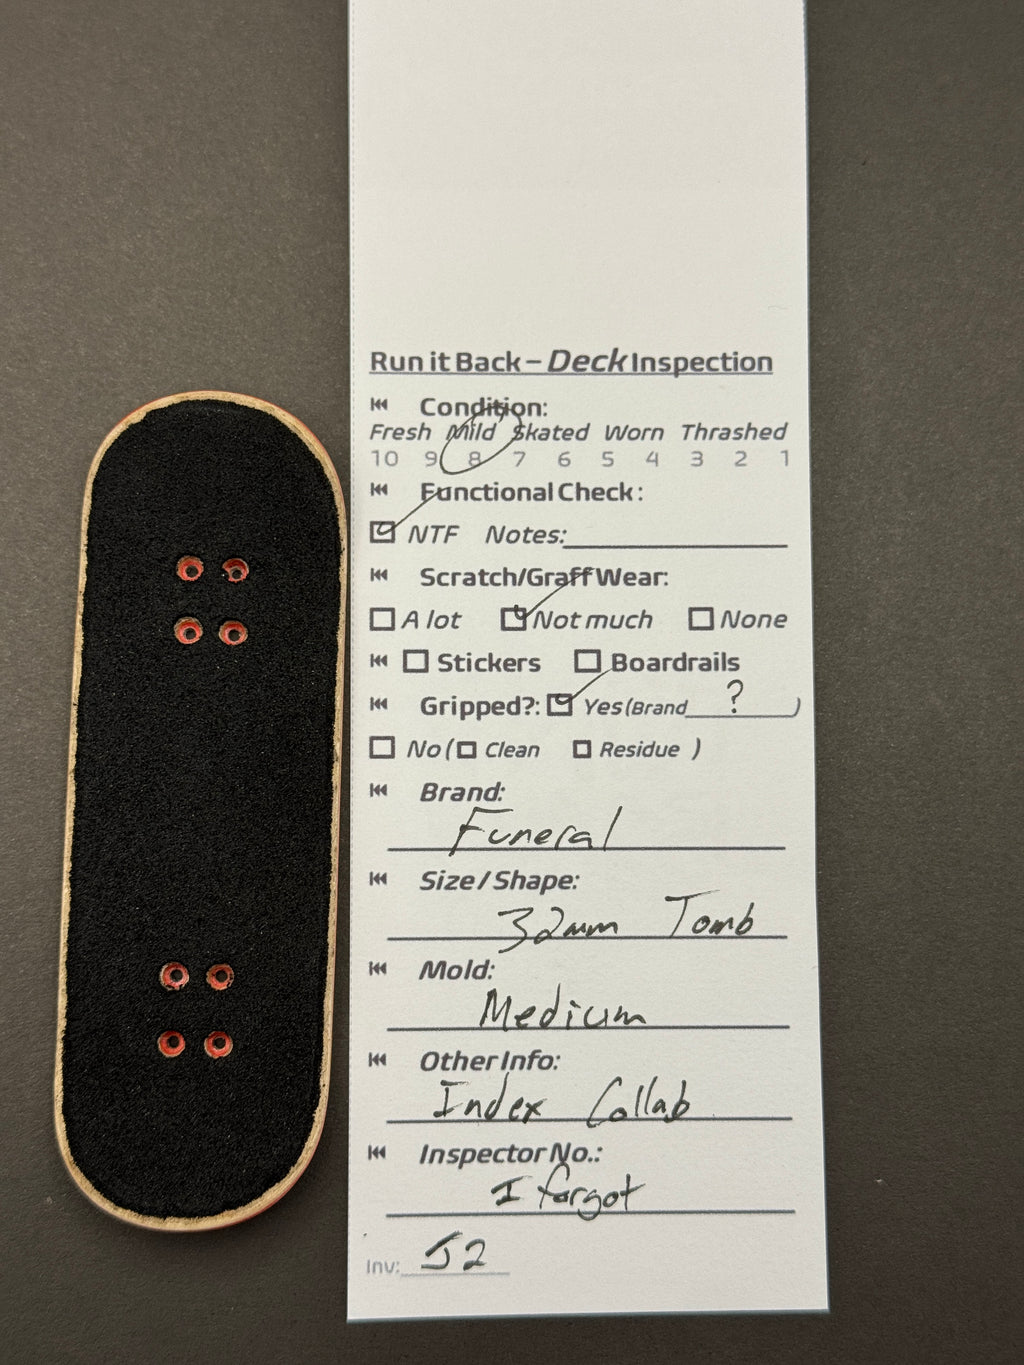 Run it Back – Deck Inspection
Condition:
Fresh Mild Skated Worn Thrashed
10 9 8 7 6 5 4 3 2 1
Functional Check:
NTF Notes:
Scratch/Graff Wear:
A lot Not much None
Stickers Boardrails
Gripped?: Yes (Brand ? )
No ( Clean Residue )
Brand:
Funeral
Size / Shape:
32mm Tomb
Mold:
Medium
Other Info:
Index Collab
Inspector No.:
I forgot
Inv: J2